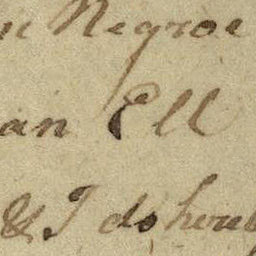 Negroe
an Ell
& I do hereby